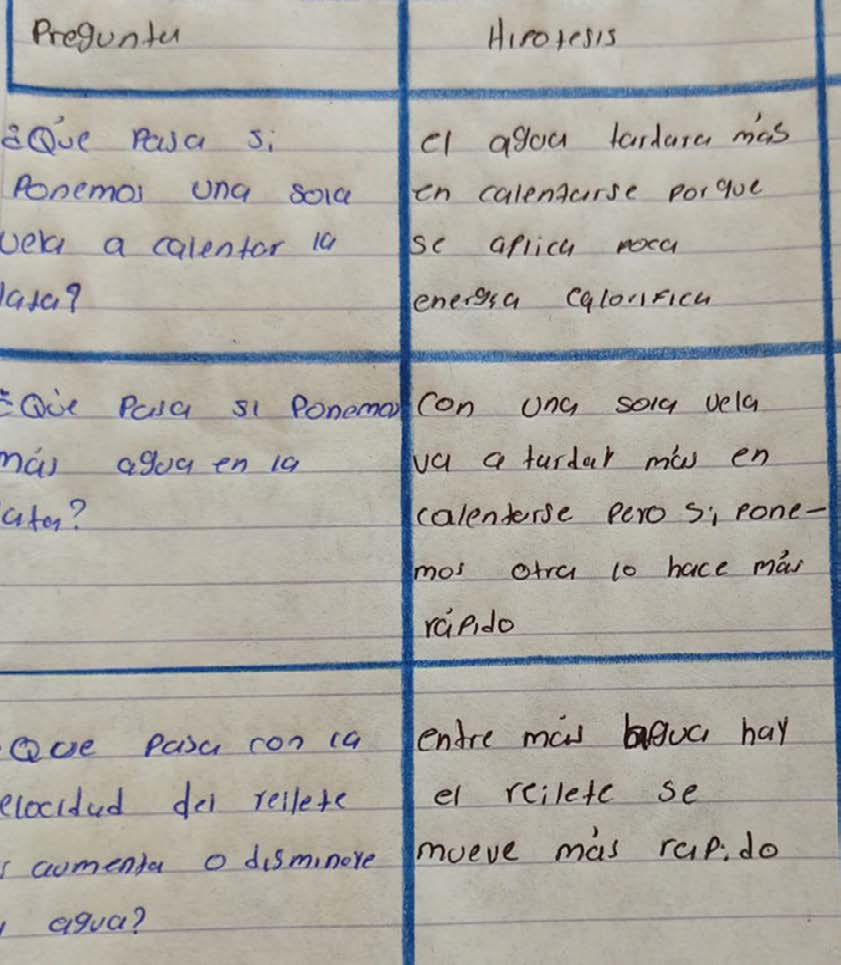 Pregunta
Hipotesis
¿Que Pasa si
Ponemos una sola
vela a calentar la
lata?
el agua tardara más
en calentarse porque
se aplica poca
energia calorifica
¿Que Pasa si Ponemos
más agua en la
lata?
Con una sola vela
va a tardar más en
calentarse pero si pone-
mos otra lo hace más
rápido
Que Pasa con la
elocidad del reilete
aumenta o disminuye
agua?
entre más agua hay
el reilete se
mueve más rapido